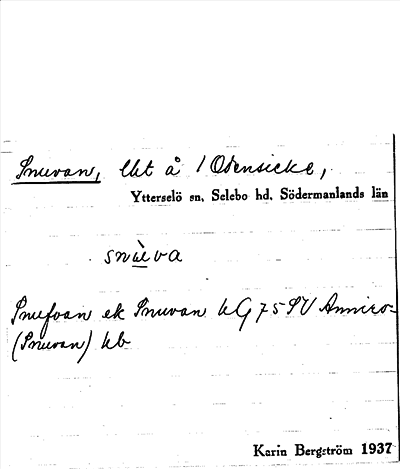 Snuvan, lht å 1 Odensicke,
Ytterselö sn. Selebo hd. Södermanlands län
snu̇va
Snufvan ek Snuvan kG 75 SV Annero-
(Snuvan) kb
Karin Bergström 1937